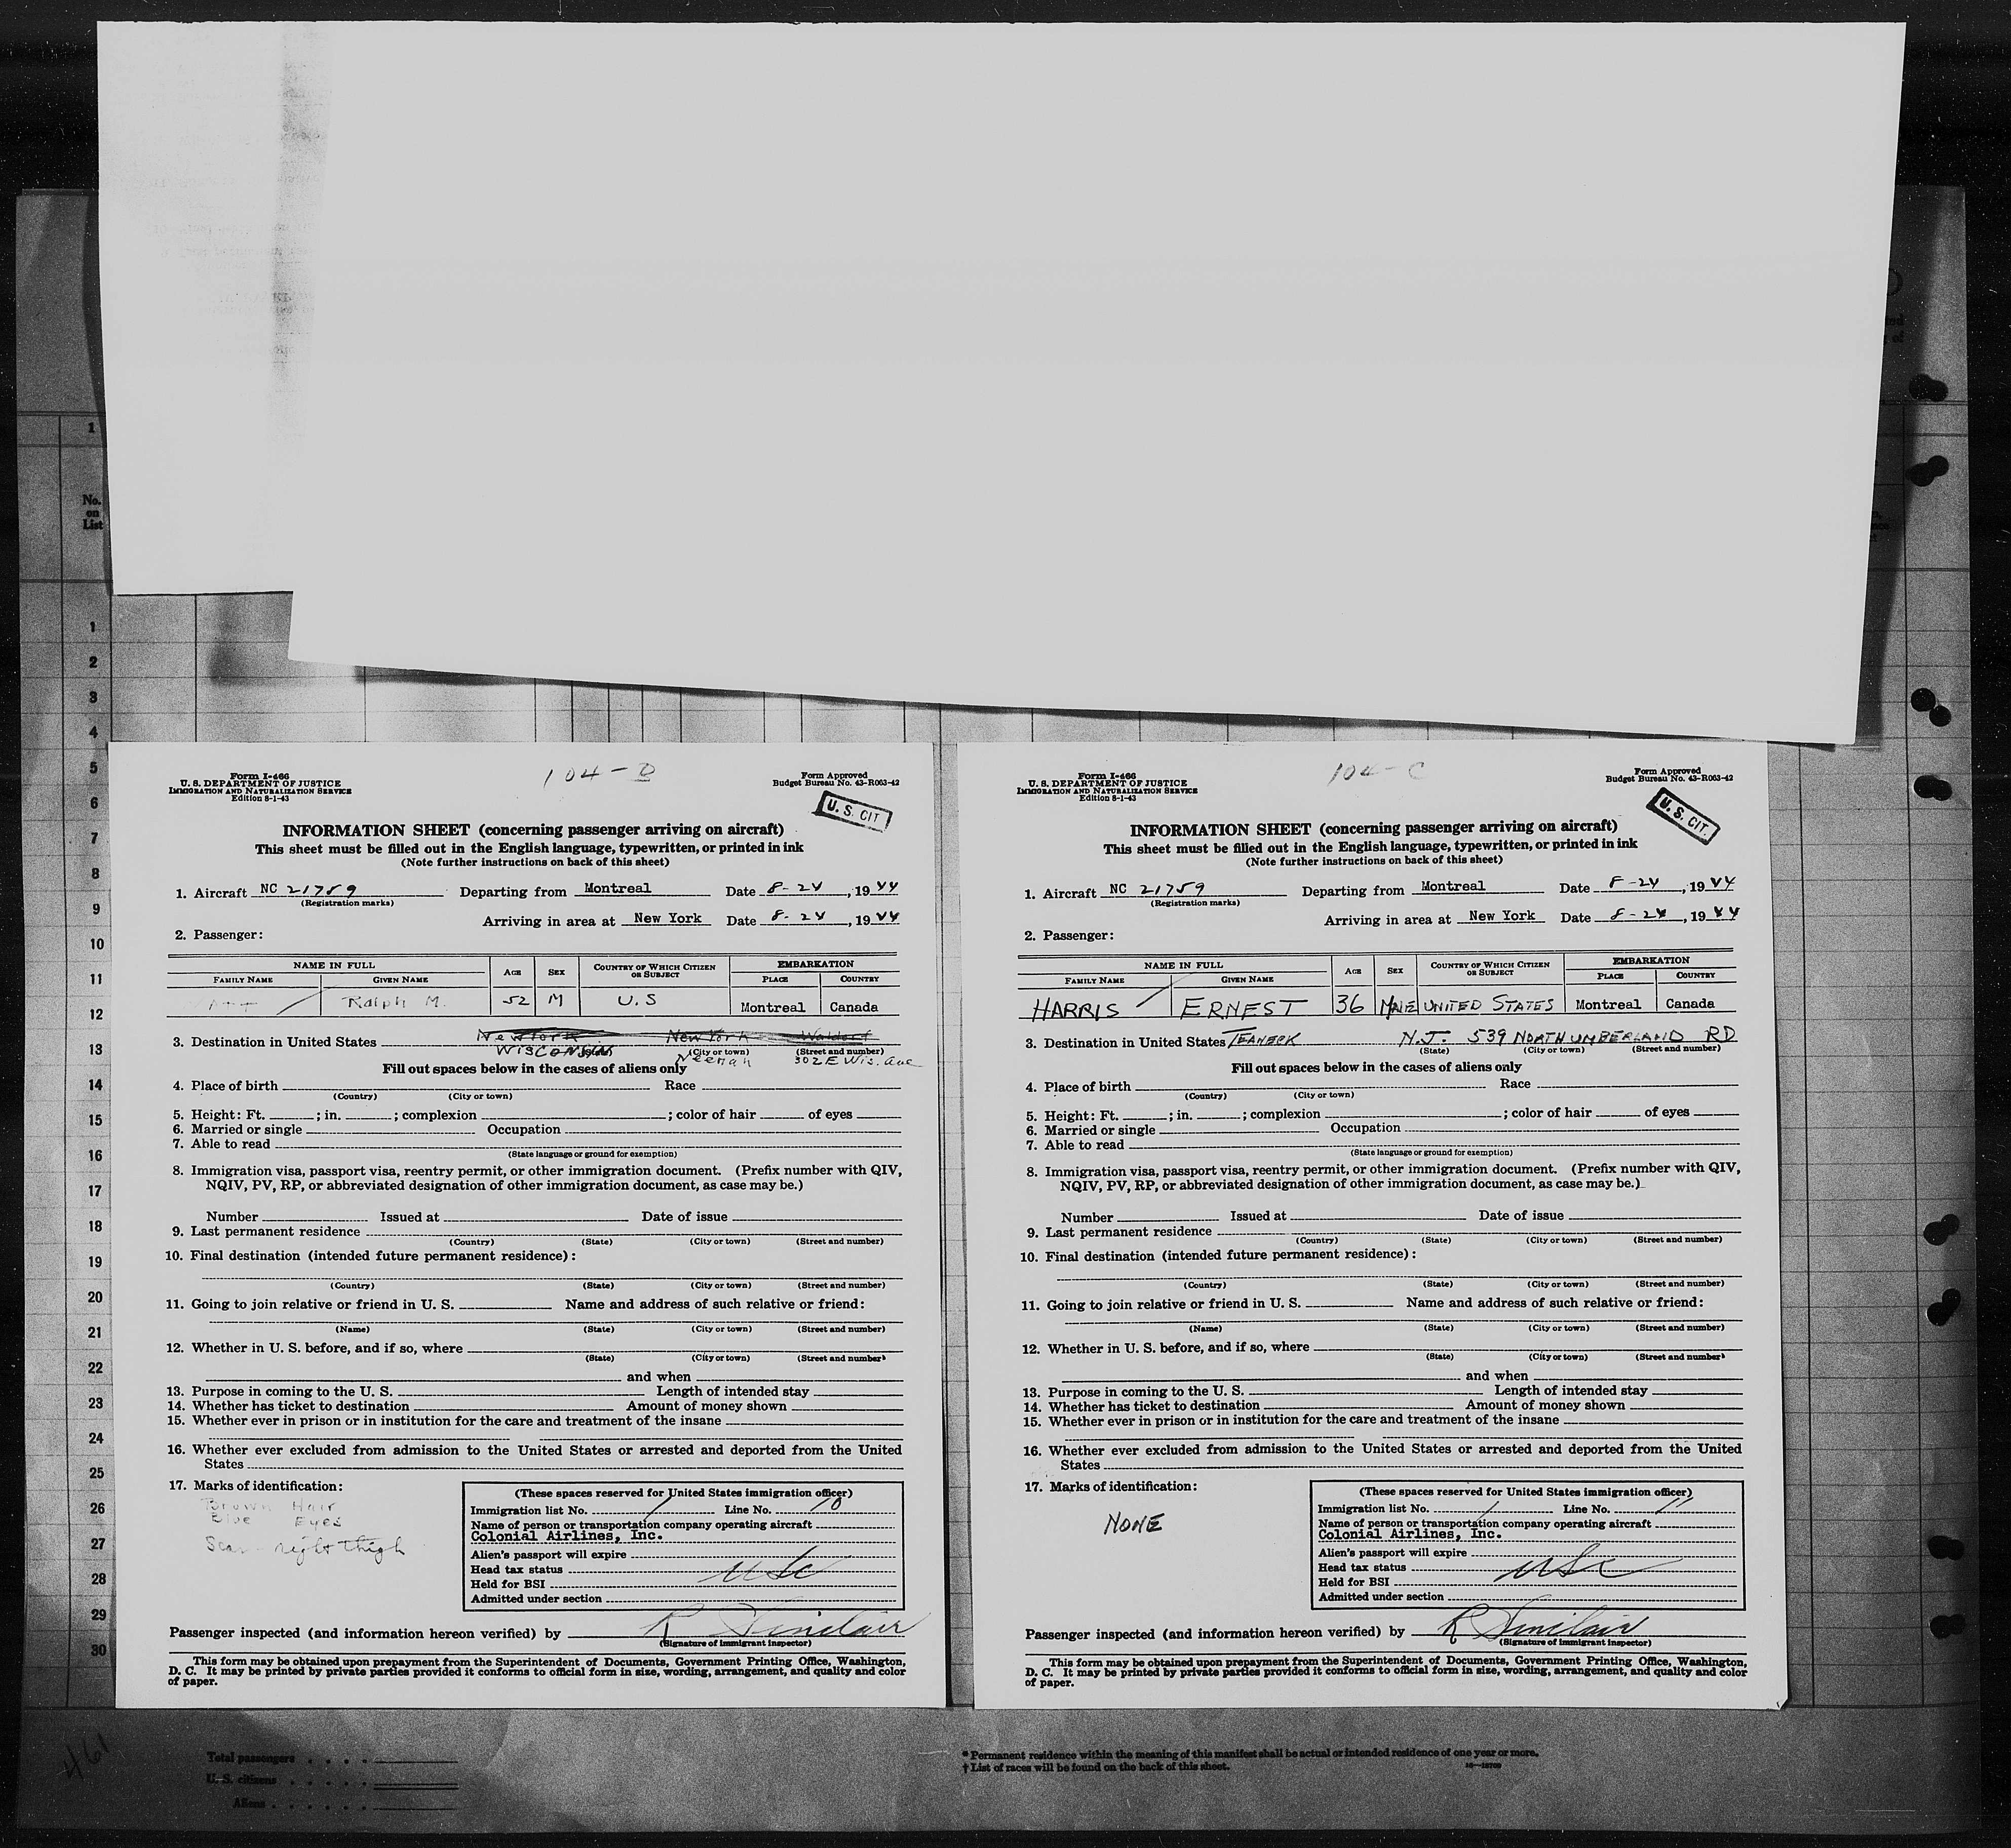 1
No.
on
List
1
2
3
4
5
6
7
8
9
10
11
12
13
14
15
16
17
18
19
20
21
22
23
24
25
26
27
28
29
30
Form I-466
U. S. DEPARTMENT OF JUSTICE
IMMIGRATION AND NATURALIZATION SERVICE
Edition 8-1-43
104-D
Form Approved
Budget Bureau No. 43-R063-42
U. S. CIT
INFORMATION SHEET (concerning passenger arriving on aircraft)
This sheet must be filled out in the English language, typewritten, or printed in ink
(Note further instructions on back of this sheet)
1. Aircraft NC 21759 Departing from Montreal Date 8-24, 1944
(Registration marks)
Arriving in area at New York Date 8-24, 1944
2. Passenger:
NAME IN FULL AGE SEX COUNTRY OF WHICH CITIZEN OR SUBJECT EMBARKATION
FAMILY NAME GIVEN NAME PLACE COUNTRY
Ralph M. 52 M U.S Montreal Canada
3. Destination in United States New York New York Waldorf
WISCONSIN Neenah 302 E Wis. Ave
(City or town) (Street and number)
Fill out spaces below in the cases of aliens only
4. Place of birth Race
(Country) (City or town)
5. Height: Ft. ; in. ; complexion ; color of hair of eyes
6. Married or single Occupation
7. Able to read
(State language or ground for exemption)
8. Immigration visa, passport visa, reentry permit, or other immigration document. (Prefix number with QIV,
NQIV, PV, RP, or abbreviated designation of other immigration document, as case may be.)
Number Issued at Date of issue
9. Last permanent residence
(Country) (State) (City or town) (Street and number)
10. Final destination (intended future permanent residence):
(Country) (State) (City or town) (Street and number)
11. Going to join relative or friend in U. S. Name and address of such relative or friend:
(Name) (State) (City or town) (Street and number)
12. Whether in U. S. before, and if so, where
(State) (City or town) (Street and number)
and when
13. Purpose in coming to the U. S. Length of intended stay
14. Whether has ticket to destination Amount of money shown
15. Whether ever in prison or in institution for the care and treatment of the insane
16. Whether ever excluded from admission to the United States or arrested and deported from the United
States
17. Marks of identification:
Brown Hair
Blue Eyes
Scar - right thigh
(These spaces reserved for United States immigration officer)
Immigration list No. 1 Line No. 10
Name of person or transportation company operating aircraft
Colonial Airlines, Inc.
Alien's passport will expire
Head tax status USC
Held for BSI
Admitted under section
Passenger inspected (and information hereon verified) by R Sinclair
(Signature of immigrant inspector)
This form may be obtained upon prepayment from the Superintendent of Documents, Government Printing Office, Washington,
D. C. It may be printed by private parties provided it conforms to official form in size, wording, arrangement, and quality and color
of paper.
Form I-466
U. S. DEPARTMENT OF JUSTICE
IMMIGRATION AND NATURALIZATION SERVICE
Edition 8-1-43
104-C
Form Approved
Budget Bureau No. 43-R063-42
U. S. CIT.
INFORMATION SHEET (concerning passenger arriving on aircraft)
This sheet must be filled out in the English language, typewritten, or printed in ink
(Note further instructions on back of this sheet)
1. Aircraft NC 21759 Departing from Montreal Date 8-24, 1944
(Registration marks)
Arriving in area at New York Date 8-24, 1944
2. Passenger:
NAME IN FULL AGE SEX COUNTRY OF WHICH CITIZEN OR SUBJECT EMBARKATION
FAMILY NAME GIVEN NAME PLACE COUNTRY
HARRIS ERNEST 36 MALE UNITED STATES Montreal Canada
3. Destination in United States TEANECK N.J. 539 NORTHUMBERLAND RD
(State) (City or town) (Street and number)
Fill out spaces below in the cases of aliens only
4. Place of birth Race
(Country) (City or town)
5. Height: Ft. ; in. ; complexion ; color of hair of eyes
6. Married or single Occupation
7. Able to read
(State language or ground for exemption)
8. Immigration visa, passport visa, reentry permit, or other immigration document. (Prefix number with QIV,
NQIV, PV, RP, or abbreviated designation of other immigration document, as case may be.)
Number Issued at Date of issue
9. Last permanent residence
(Country) (State) (City or town) (Street and number)
10. Final destination (intended future permanent residence):
(Country) (State) (City or town) (Street and number)
11. Going to join relative or friend in U. S. Name and address of such relative or friend:
(Name) (State) (City or town) (Street and number)
12. Whether in U. S. before, and if so, where
(State) (City or town) (Street and number)
and when
13. Purpose in coming to the U. S. Length of intended stay
14. Whether has ticket to destination Amount of money shown
15. Whether ever in prison or in institution for the care and treatment of the insane
16. Whether ever excluded from admission to the United States or arrested and deported from the United
States
17. Marks of identification:
NONE
(These spaces reserved for United States immigration officer)
Immigration list No. 1 Line No. 11
Name of person or transportation company operating aircraft
Colonial Airlines, Inc.
Alien's passport will expire
Head tax status USC
Held for BSI
Admitted under section
Passenger inspected (and information hereon verified) by R Sinclair
(Signature of immigrant inspector)
This form may be obtained upon prepayment from the Superintendent of Documents, Government Printing Office, Washington,
D. C. It may be printed by private parties provided it conforms to official form in size, wording, arrangement, and quality and color
of paper.
461
Total passengers . . . .
U. S. citizens . . . . .
Aliens . . . . . .
* Permanent residence within the meaning of this manifest shall be actual or intended residence of one year or more.
† List of races will be found on the back of this sheet.